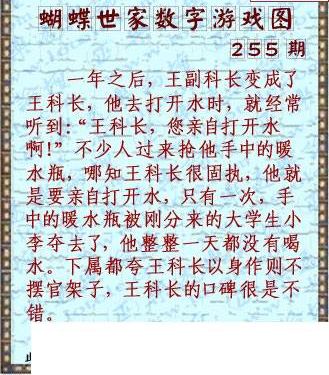 蝴蝶世家数字游戏图
255期
一年之后，王副科长变成了
王科长，他去打开水时，就经常
听到：“王科长，您亲自打开水
啊！”不少人过来抢他手中的暖
水瓶，哪知王科长很固执，他就
是要亲自打开水，只有一次，手
中的暖水瓶被刚分来的大学生小
李夺去了，他整整一天都没有喝
水。下属都夸王科长以身作则不
摆官架子，王科长的口碑很是不
错。